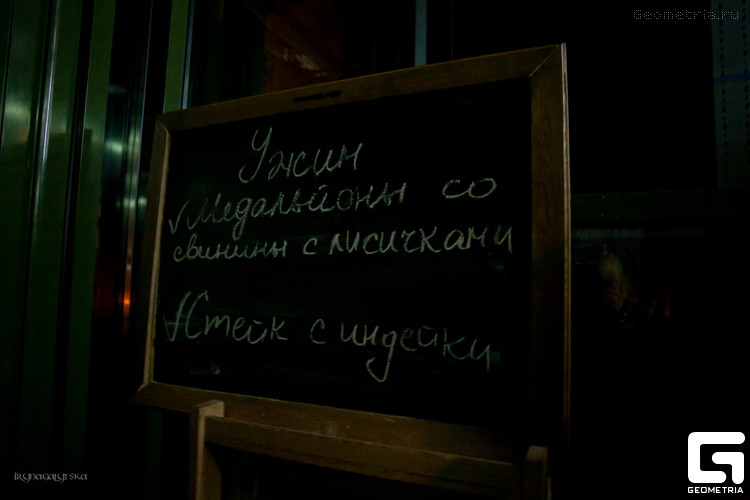 Geometria.ru
Ужин
✓Медальйоны со
свинины с лисичками
✓Стейк с индейки
irynagalyrska
GEOMETRIA